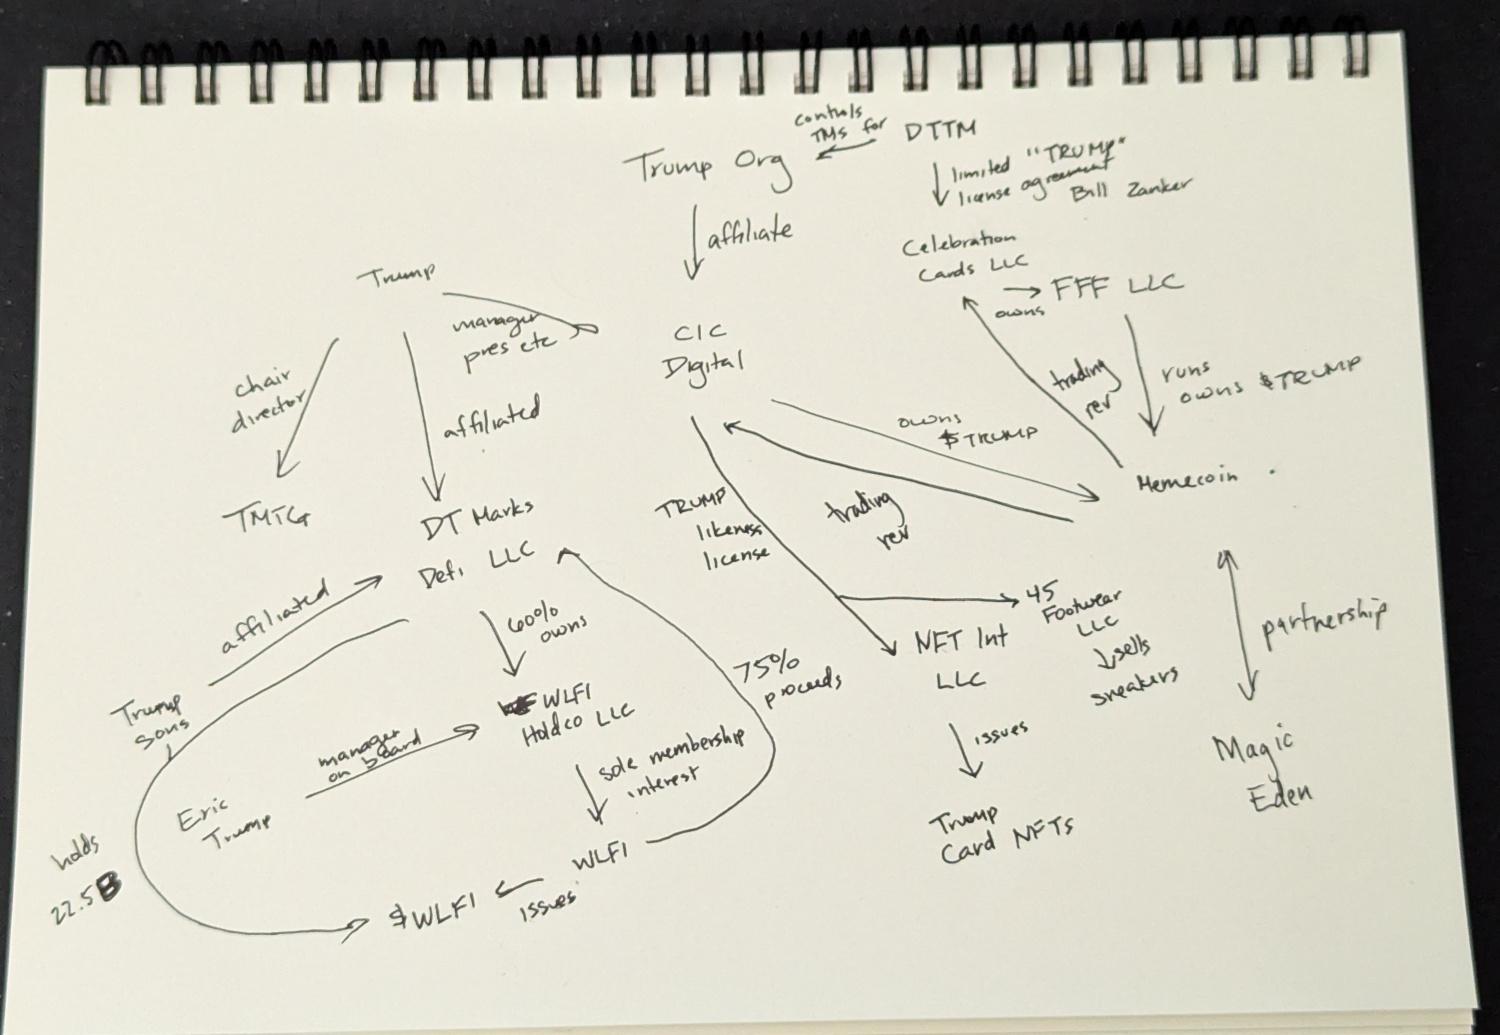 controls
TMs for
DTTM
Trump Org
limited "TRUMP"
license agreement
Bill Zanker
affiliate
Celebration
Cards LLC
owns
FFF LLC
Trump
manager
pres etc
CIC
Digital
chair
director
affiliated
owns
$TRUMP
trading
rev
runs
owns $TRUMP
Memecoin
TMTG
DT Marks
Defi LLC
TRUMP
likeness
license
trading
rev
affiliated
60%
owns
75%
proceeds
NFT Int
LLC
45
Footwear
LLC
sells
sneakers
partnership
Trump
sons
WLFI
Holdco LLC
manager
on board
sole membership
interest
issues
Magic
Eden
Eric
Trump
Trump
Card NFTs
WLFI
holds
22.5B
$WLFI
issues